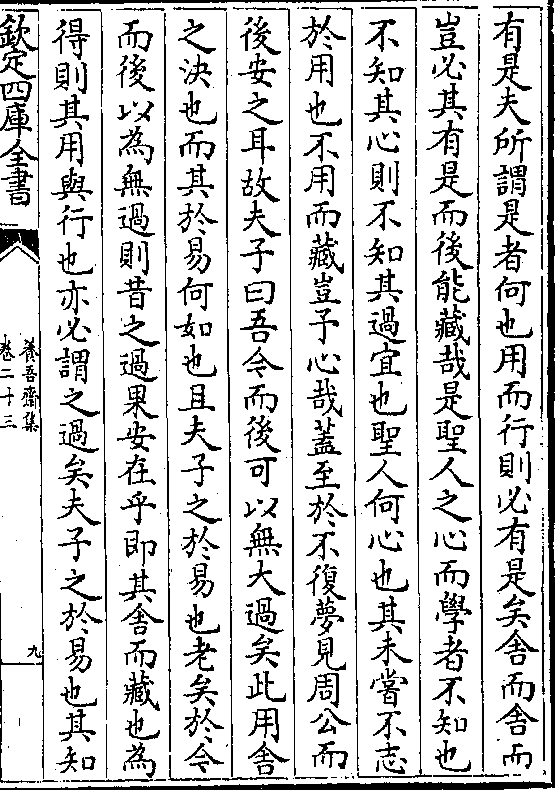 有是夫所謂是者何也用而行則必有是矣舍而舍而
豈必其有是而後能藏哉是聖人之心而學者不知也
不知其心則不知其過宜也聖人何心也其未嘗不志
於用也不用而藏豈予心哉蓋至於不復夢見周公而
後安之耳故夫子曰吾今而後可以無大過矣此用舍
之決也而其於易何如也且夫子之於易也老矣於今
而後以為無過則昔之過果安在乎即其舍而藏也為
得則其用與行也亦必謂之過矣夫子之於易也其知
欽定四庫全書
養吾齋集
卷二十三
九